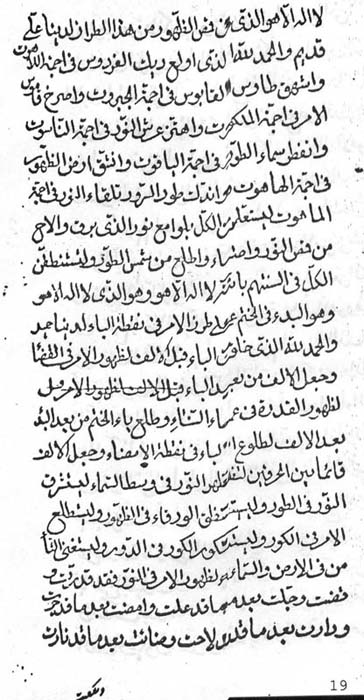 لا اله الا هو الذی عن قمص الظهور من هذا الطراز لدینا علی
قدیم والحمد لله الذی اولع دیك الفردوس فی اجمة اللاهوت
واشهق طاوس القابوس فی اجمة الجبروت واصرخ
الامر فی اجمة الملكوت واهتز عرش النور فی اجمة الناسوت
وانفطر سماء الطور فی اجمة الیاقوت وانشق ارض الظهور
فی اجمة الهاهوت واندك طور الرور تلقاء النور فی اجمة
الماهوت لیستعلمن الكل بلوامع نور الذی برق والاح
من قمص النور واضاء واطلع من شمس الطور ولیستنطقن
الكل فی السنتهم بانه لا اله الا هو وهو الذی لا اله الا هو
وهو البدء فی الختم علی طرز الامر فی نقطة الباء لدینا حمید
والحمد لله الذی خلق الباء قبل الالف لظهور الامر فی القضاء
وجعل الالف من بعد الباء قبل الالف لظهور الامر قبل
لظهور القدرة فی عماء الثناء وطلع باء الختم من بعد البدء
بعد الالف لطلوع الباء فی نقطة الامضاء وجعل الالف
قائما بین الحرفین لظهور النور فی وسط السماء لیستغرق
النور فی الطور ولیستر الورقاء فی الظهور ولیستطلع
الامر فی الكور ولیستكور الكور فی الدور ولیستغنی
من فی الارض والسماء لظهور الامر فی النور فقد قدرت و
قضت وجلت بعد ما قد علت وامضت بعد ما قد
ودارت بعد ما قد لاحت وضائت بعد ما قد نارت
19